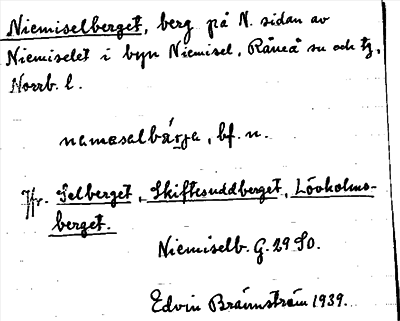 Niemiselberget, berg på N. sidan av
Niemiselet i byn Niemisel, Råneå sn och tg,
Norrb. l.
namasalbárja, bf. n.
Jfr. Selberget, Skiftesuddberget, Lövholms-
berget.
Niemiselb. G. 29 SO.
Edvin Brännström 1939.